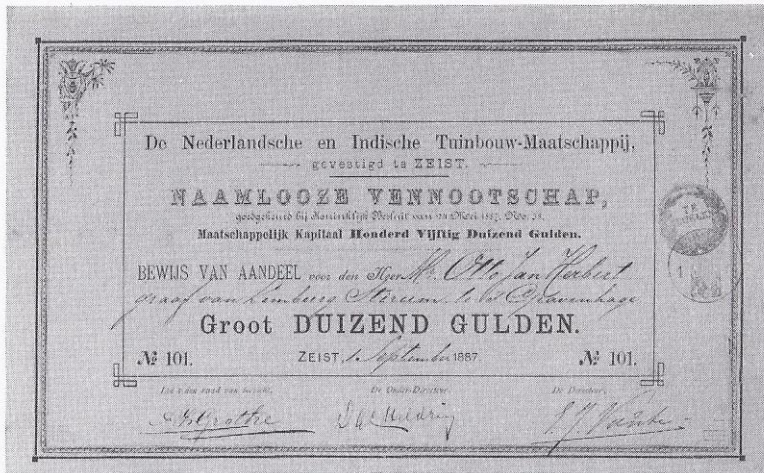 De Nederlandsche en Indische Tuinbouw-Maatschappij,
gevestigd te ZEIST.
NAAMLOOZE VENNOOTSCHAP,
goedgekeurd bij Koninklijk Besluit van Mei 1887, No. 38.
Maatschappelijk Kapitaal Honderd Vijftig Duizend Gulden.
BEWIJS VAN AANDEEL voor den Heer Mr. Otto Jan Herbert
graaf van Limburg Stirum te 's Gravenhage
Groot DUIZEND GULDEN.
№ 101. ZEIST, 1 September 1887. № 101.
Lid v. den raad van De Onder-Directeur, De Directeur,